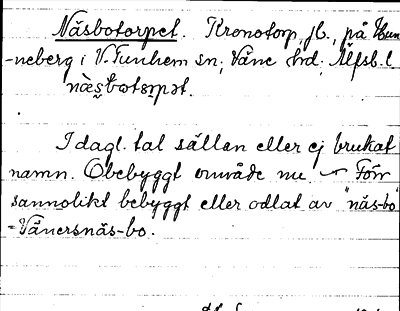 Näsbotorpet. Kronotorp, jb., på Hun-
-neberg i V. Tunhem sn; Väne hd; Älfsb. l.
nä̀s̬botɷrpət.
I dagl. tal sällan eller ej brukat
namn. Obebyggt område nu – Förr
sannolikt bebyggt eller odlat av "näs-bo"
= Vänersnäs-bo.